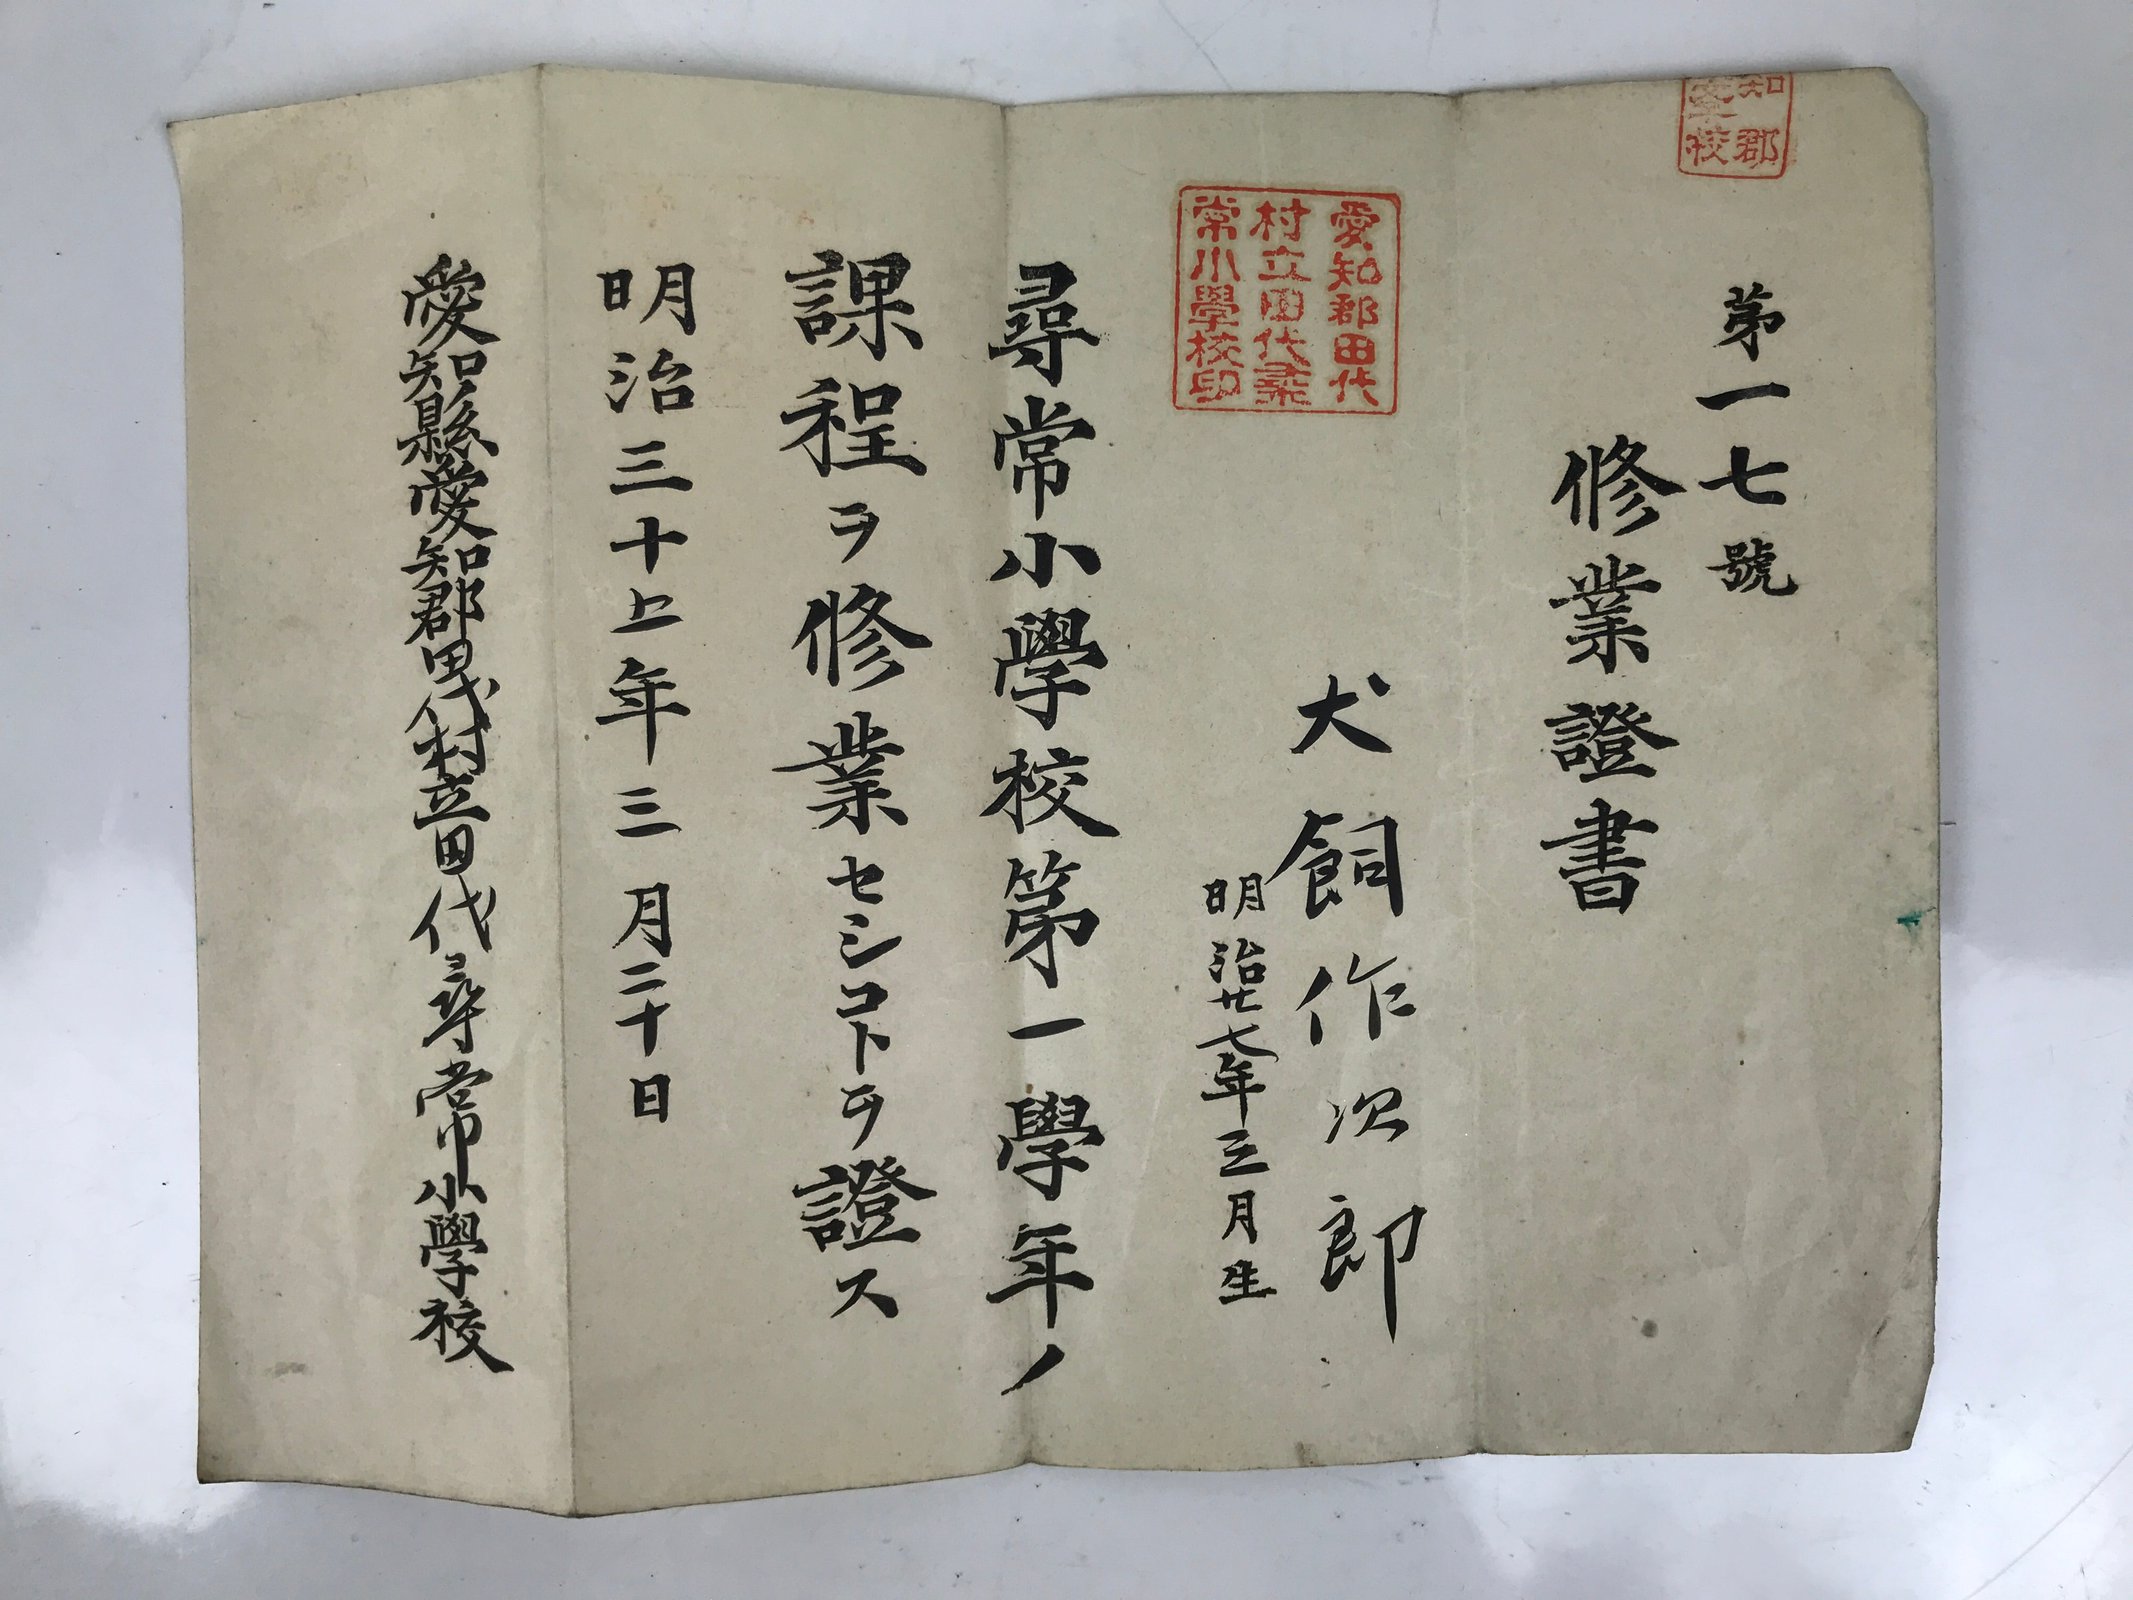 知郡
學校
苐一七號
修業證書
愛知郡田代
村立田代尋
常小學校印
犬飼作次郎
明治廿七年三月生
尋常小學校第一學年ノ
課程ヲ修業セシコトヲ證ス
明治三十年三月二十日
愛知縣愛知郡田代村立田代尋常小學校